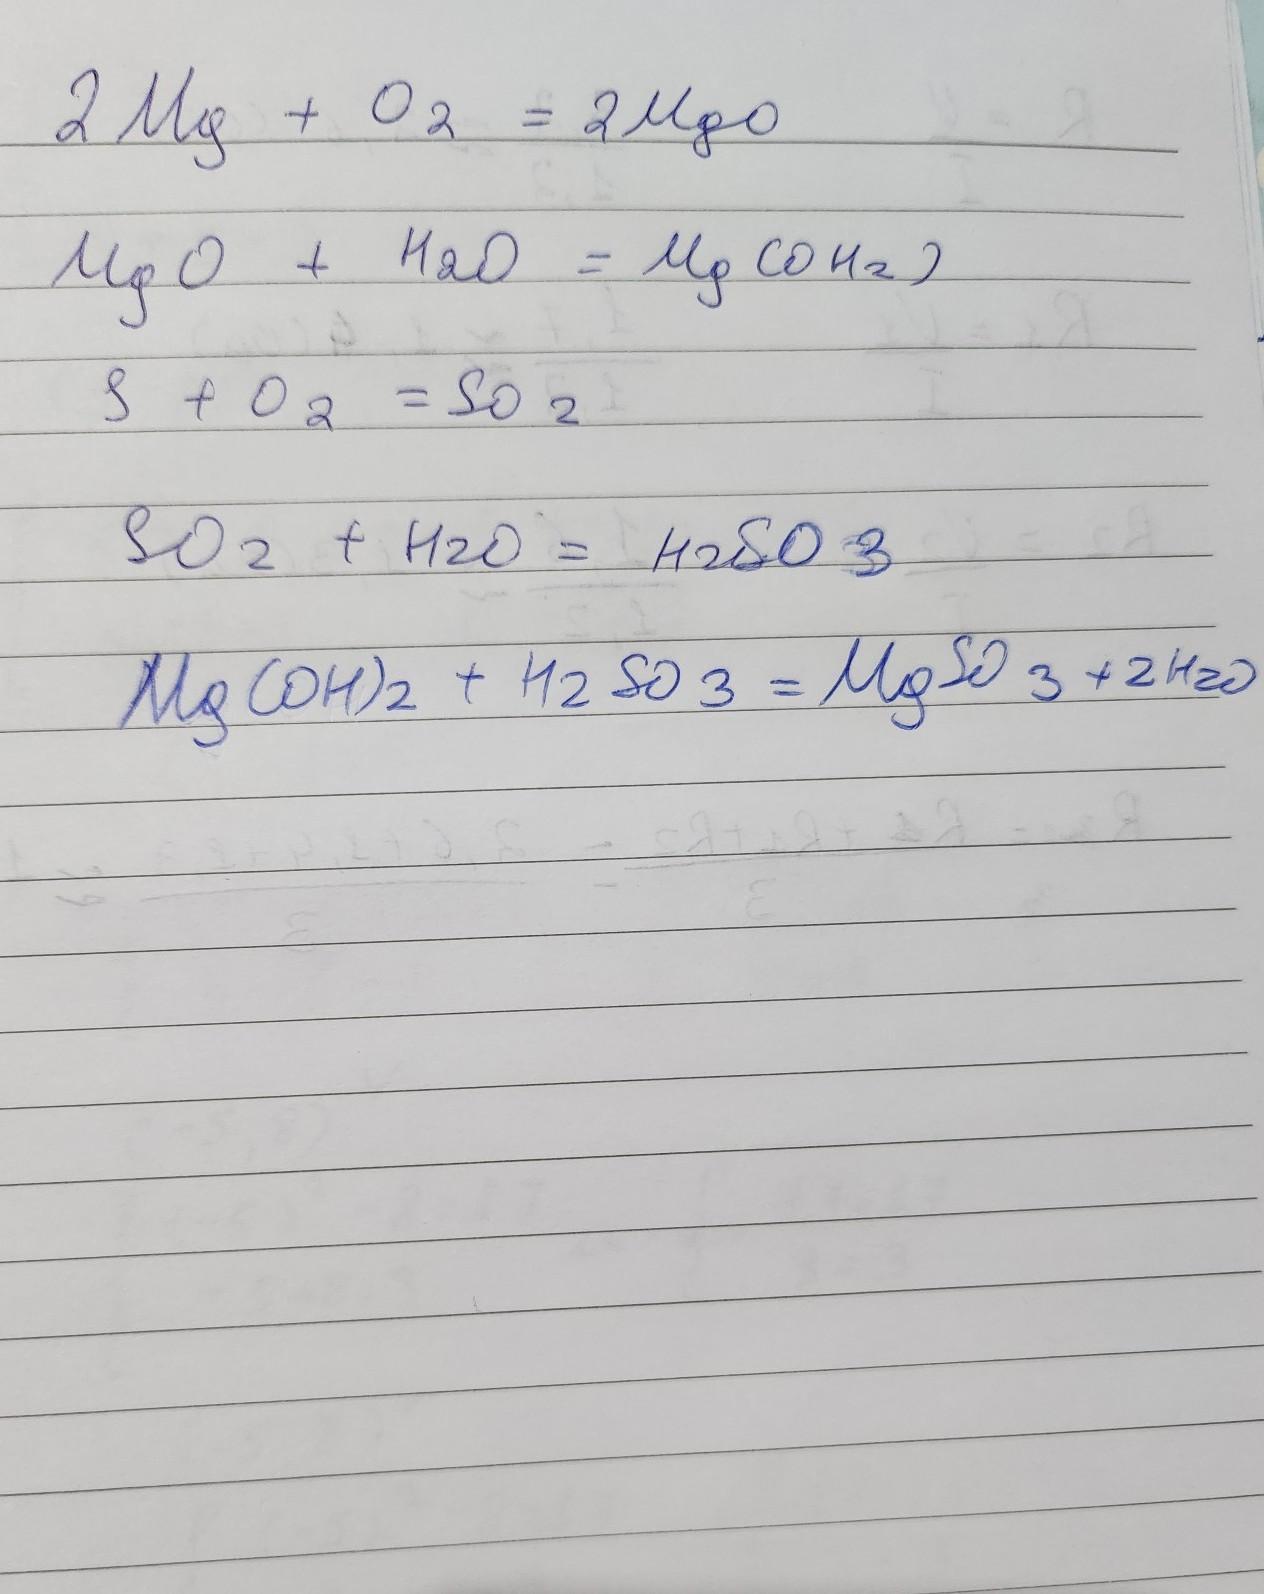 2Mg + O2 = 2MgO
MgO + H2O = Mg(OH2)
S + O2 = SO2
SO2 + H2O = H2SO3
Mg(OH)2 + H2SO3 = MgSO3 + 2H2O